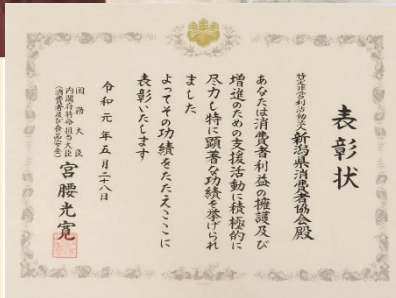 表彰状
特定非営利活動法人新潟県消費者協会殿
あなたは消費者利益の擁護及び
増進のための支援活動に積極的に
尽力し特に顕著な功績を挙げられ
ました
よってその功績をたたえここに
表彰いたします
令和元年五月二十八日
国務大臣
内閣府特命担当大臣
(消費者及び食品安全)
宮腰光寛